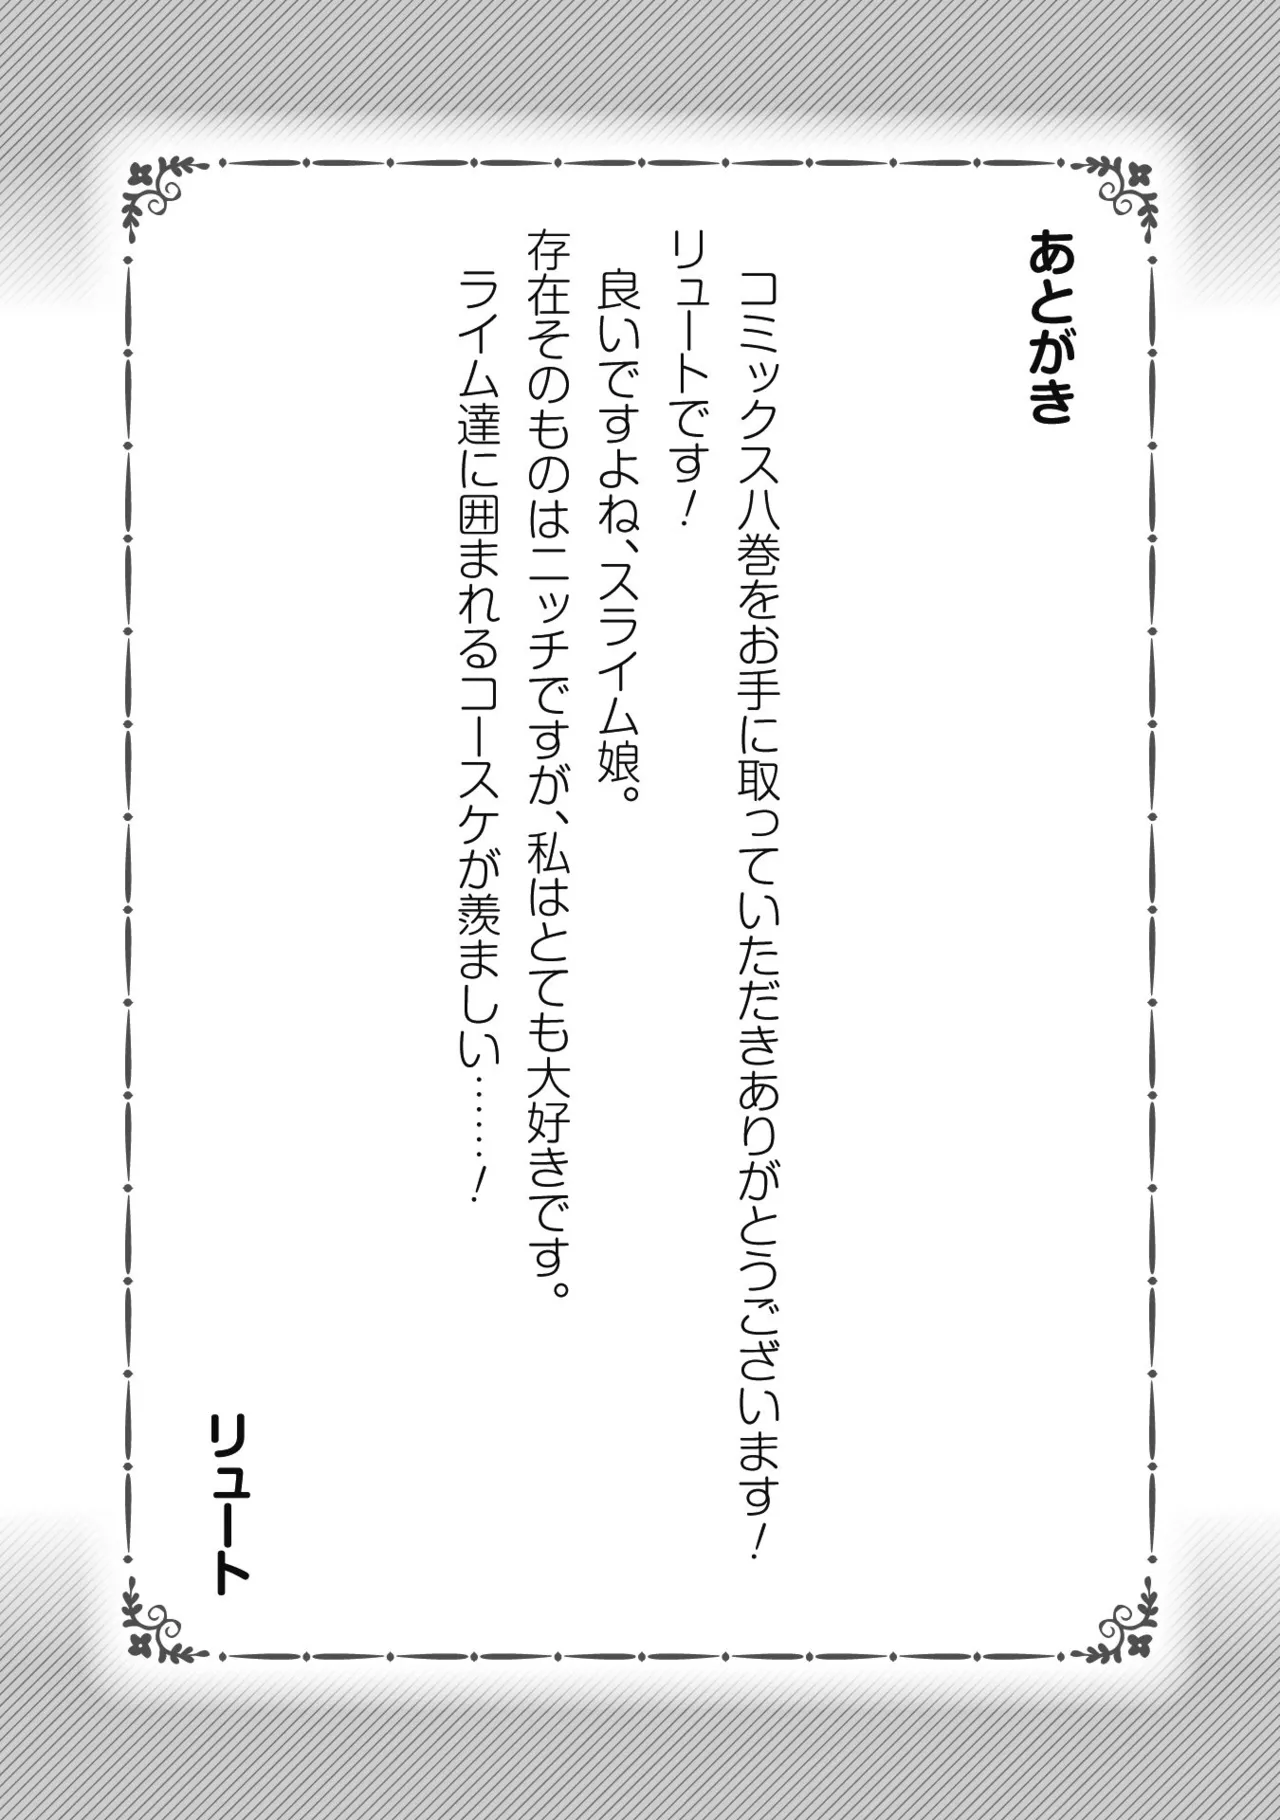 あとがき
コミックス八巻をお手に取っていただきありがとうございます！
リュートです！
良いですよね、スライム娘。
存在そのものはニッチですが、私はとても大好きです。
ライム達に囲まれるコースケが羨ましい……！
リュート